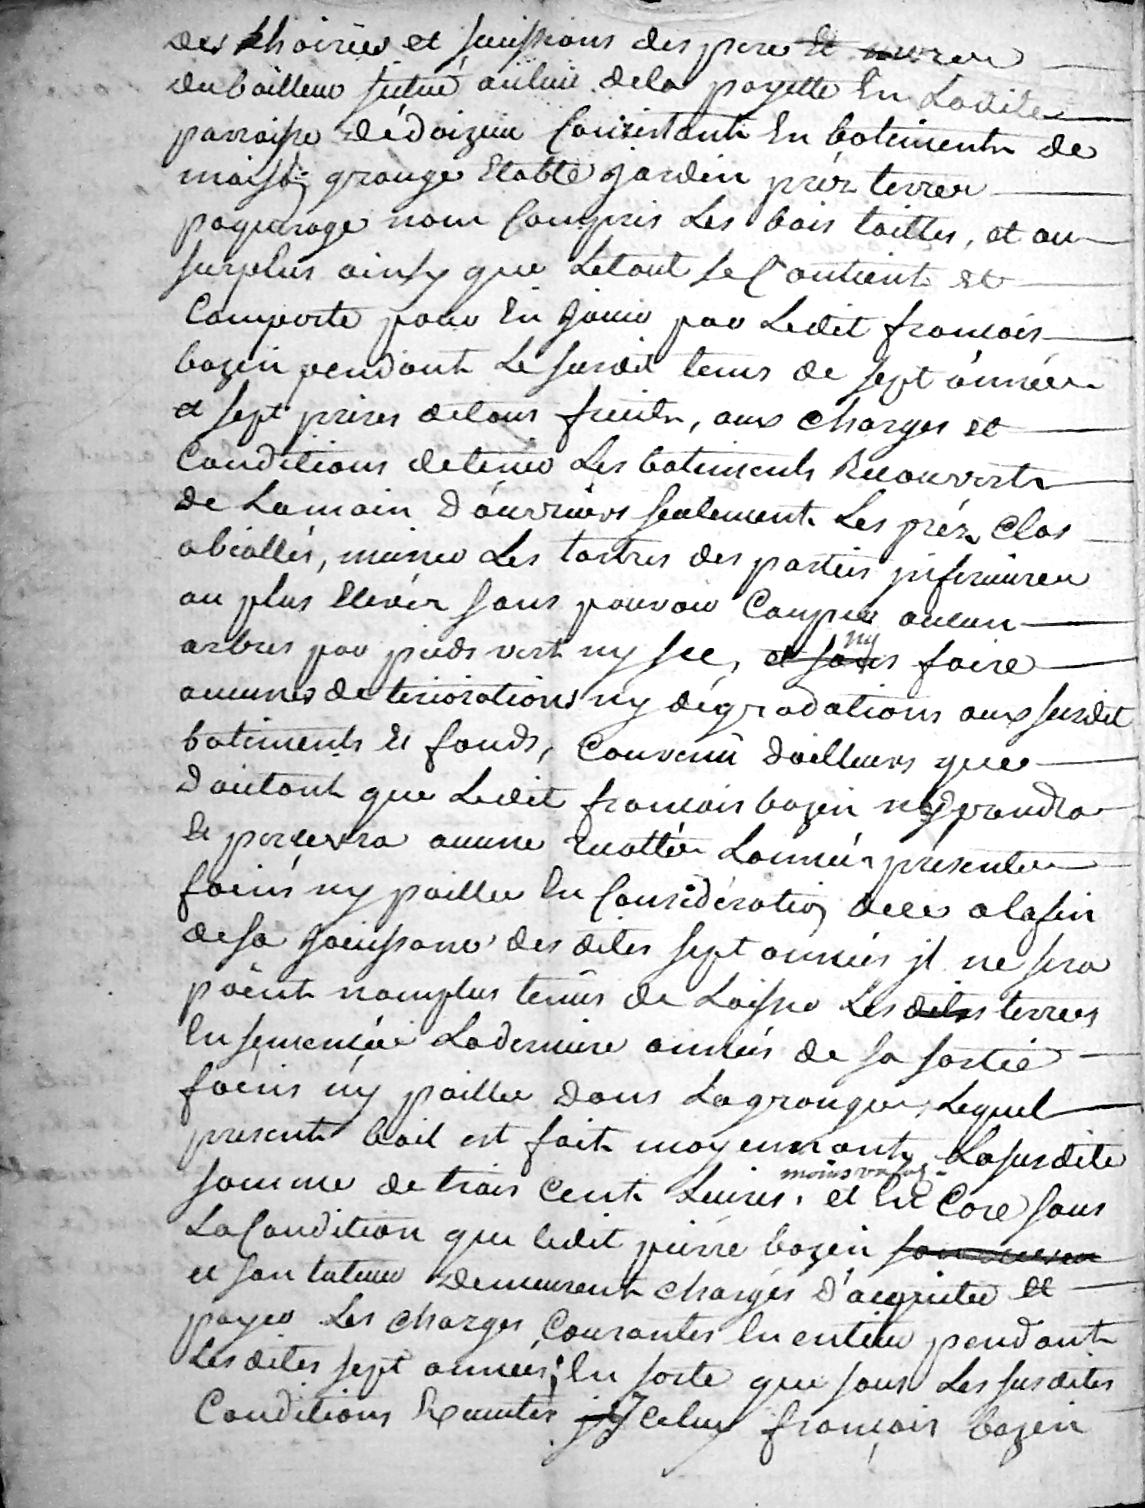 des hoirie et successions des pere et mere
du bailleur situé au lieu de la payette En Ladite
parroisse dédoizieu Consistants En batiments de
maison grange Etable jardin préz terres
paquerage non Compris Les bois taittes, et au
surplus ainsy que Letout se Contient et
Comporte pour En jouir par Ledit francois
bazin pendant Le susdit tems de sept années
et sept prises detous fruits, aux charges et
Conditions detenir Les batiments Recouverts
de Lamain d'ouvriers seulement Les préz Clos
abiallés, mener Les tertres des parties jnferieures
au plus Elevés sans pouvoir Couper aucun
arbres par pieds vert ny sec, et sans ny faire
aucunes deteriorations ny dégradations aux susdit
batiments et fonds, Convenu dailleurs que
Dautant que Ledit francois bazin n'y prendra
Et percevra aucune Recoltée Lannée présente
foins ny paillee En Considération de ce alafin
desa jouissance des dites sept années jl ne sera
point nomplus tenus de Laisser Les dites terres
Ensemencée Laderniere années de sa sortie
foins ny paillee Dans Lagrange, Lequel
present bail est fait moyennant Lasusdite
somme de trois Cent Livres, et En Core sous
LaCondition que ledit pierre bazin
et son tuteur demeurent chargés d'acquiter et
payer Les charges Courantes En entier pendant
Lesdites sept années; En sorte que sous Les susdites
Conditions Recuites jcelluy françois bazin